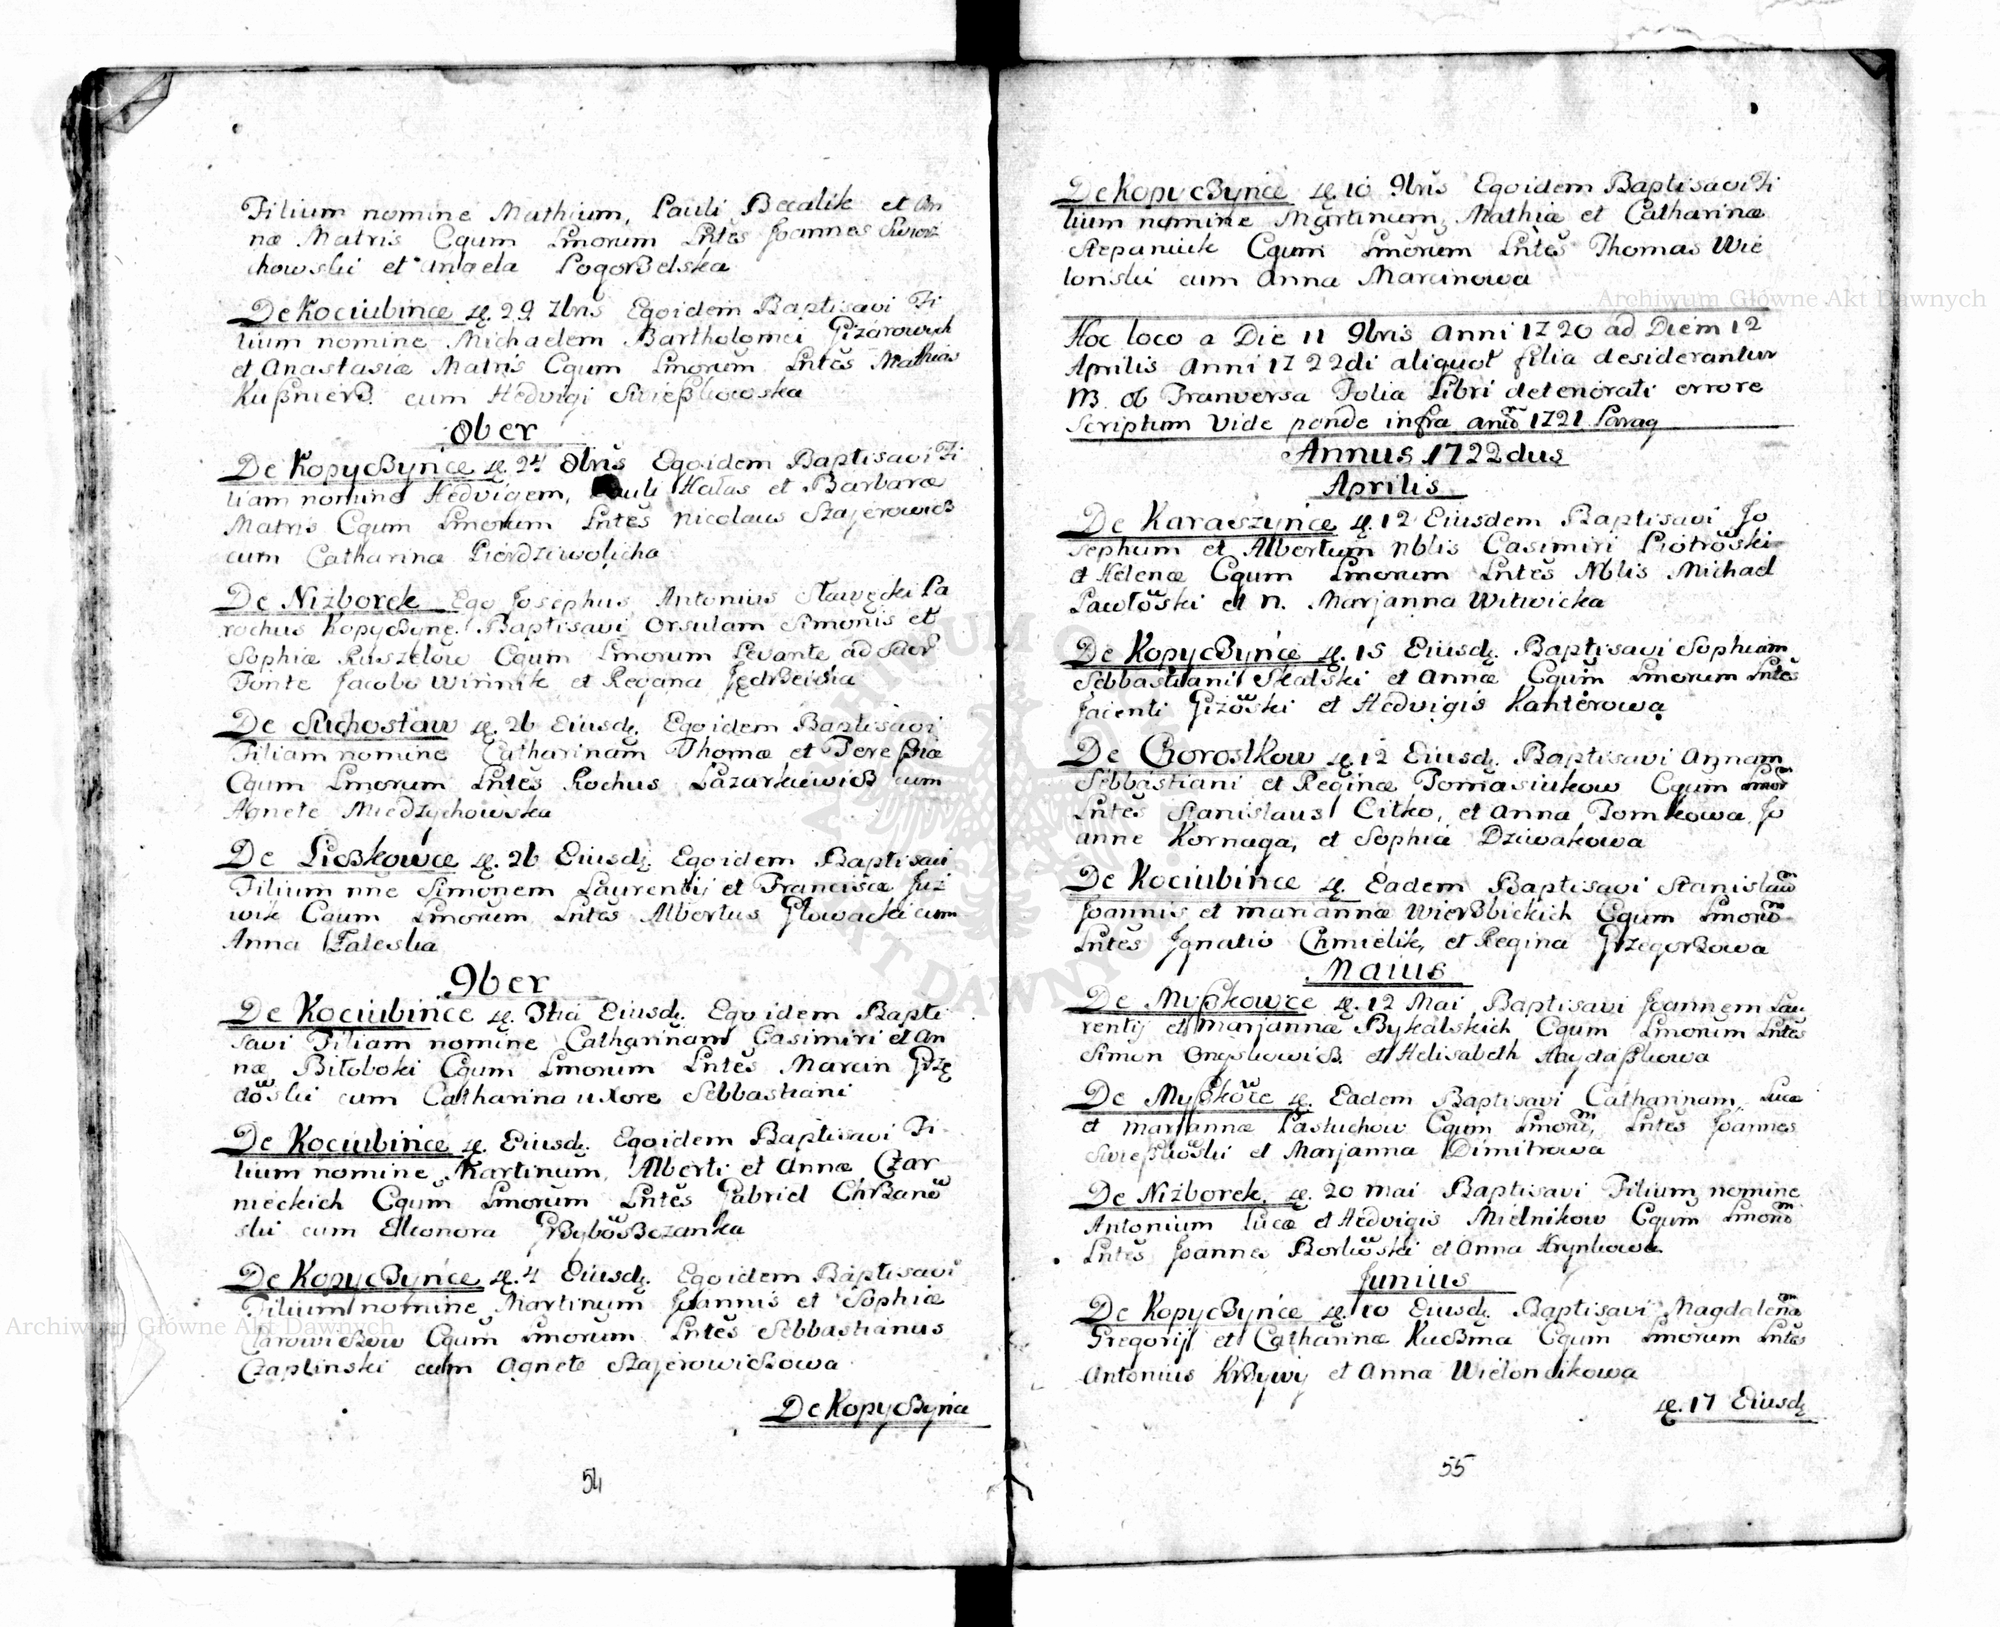 Filium nomine Mathium, Pauli Becalik et An
næ Matris Cqum Lmorum Lntes Joannes Swierz
chowski et Angela Pogorzelska
De Kociubince d. 29 7bris Egoidem Baptisavi Fi
lium nomine Michaelem Bartholomei Gizarowich
et Anastasiæ Matris Cqum Lmorum Lntes Mathias
Kußnierz cum Hedvigi Swießkowska
8ber
De Kopyczynce d. 24 8bris Egoidem Baptisavi Fi
liam nomine Hedvigem, Pauli Hałas et Barbaræ
Matris Cqum Lmorum Lntes Nicolaus Szajerowicz
cum Catharina Pierdziwolicha
De Niżborek Ego Josephus Antonius Sławęcki Pa
rochus Kopyczync. Baptisavi Orsulam Simonis et
Sophiæ Ruszelow Cqum Lmorum Levante ad Sacr
Fonte Jacobo Winnik et Regana Jędrzeicia
De Suchostaw d. 26 Eiusd. Egoidem Baptisavi
Filiam nomine Catharinam Thomæ et Tereßiæ
Cqum Lmorum Lntes Rochus Lazarkiewicz cum
Agnete Miedzychowska
De Lioskowce d. 26 Eiusd. Egoidem Baptisavi
Filium nne Simonem Laurentij et Francisca Juz
wik Cqum Lmorum Lntes Albertus Głowacki cum
Anna Zaleska
9ber
De Kociubince d. 3tia Eiusd. Egoidem Bapti
savi Filiam nomine Catharinam Casimiri et An
næ Biłoboki Cqum Lmorum Lntes Marcin Grzę
doski cum Catharina uxore Sebbastiani
De Kociubince d. Eiusd. Egoidem Baptisavi Fi
lium nomine Martinum, Alberti et Annæ Czar
nieckich Cqum Lmorum Lntes Gabriel Chrzano
ski cum Elleonora Grzybosczanka
De Kopyczynce d. 4 Eiusd. Egoidem Baptisavi
Filium nomine Martinum Joannis et Sophiæ
Carowiczow Cqum Lmorum Lntes Sebbastianus
Czaplinski cum Agnete Szajerowiczowa
De Kopyczynce
54
De Kopyczynce d. 10 9bris Egoidem Baptisavi Fi
lium nomine Martinum, Mathiæ et Catharinæ
Stepaniuk Cqum Lmorum Lntes Thomas Wie
lonski cum Anna Marcinowa
Hoc loco a Die 11 9bris Anni 1720 ad Diem 12
Aprilis Anni 1722di aliquot filia desiderantur
NB. ob Tranversa Folia Libri deteriorati errore
Scriptum Vide ponde infra anū 1721 Parag
Annus 1722dus
Aprilis
De Karaszynce d. 12 Eiusdem Baptisavi Jo
sephum et Albertum Nblis Casimiri Piotroski
et Helenæ Cqum Lmorum Lntes Nblis Michael
Pawłoski et N. Marjanna Witwicka
De Kopyczynce d. 15 Eiusd. Baptisavi Sophiam
Sebbastiani Skalski et Annæ Cqum Lmorum Lntes
Jacenti Gizoski et Hedvigis Kanterowa
De Chorostkow d. 12 Eiusd. Baptisavi Annam
Sebbastiani et Reginæ Tomasiukow Cqum Lmor
Lntes Stanislaus Citko, et Anna Tomkowa, Jo
anne Kornaga, et Sophia Dziwakowa
De Kociubince d. Eadem Baptisavi Stanislaū
Joannis et Mariannæ Wierzbickich Cqum Lmorū
Lntes Ignatio Chmielik, et Regina Grzegorzowa
Maius
De Myßkowce d. 12 Mai Baptisavi Joannem Lau
rentij et Marjannæ Bykalskich Cqum Lmorum Lntes
Simon Onyßkowicz. et Helisabeth Haydaßkowa
De Myßkoce d. Eadem Baptisavi Catharinam, Lucæ
et Marjannæ Pastuchow Cqum Lmorū, Lntes Joannes
Swießkoski et Marjanna Dimitrowa
De Niżborek, d. 20 Mai Baptisavi Filium nomine
Antonium Lucæ et Hedvigis Mielnikow Cqum Lmorū
Lntes Joannes Borkoski et Anna Hrynkowa.
Junius
De Kopyczynce d. 10 Eiusd. Baptisavi Magdalenā
Gregorij et Catharinæ Kuczma Cqum Lmorum Lntes
Antonius Krzywy et Anna Wielondkowa
d. 17 Eiusd
55
Archiwum Główne Akt Dawnych
Archiwum Główne Akt Dawnych